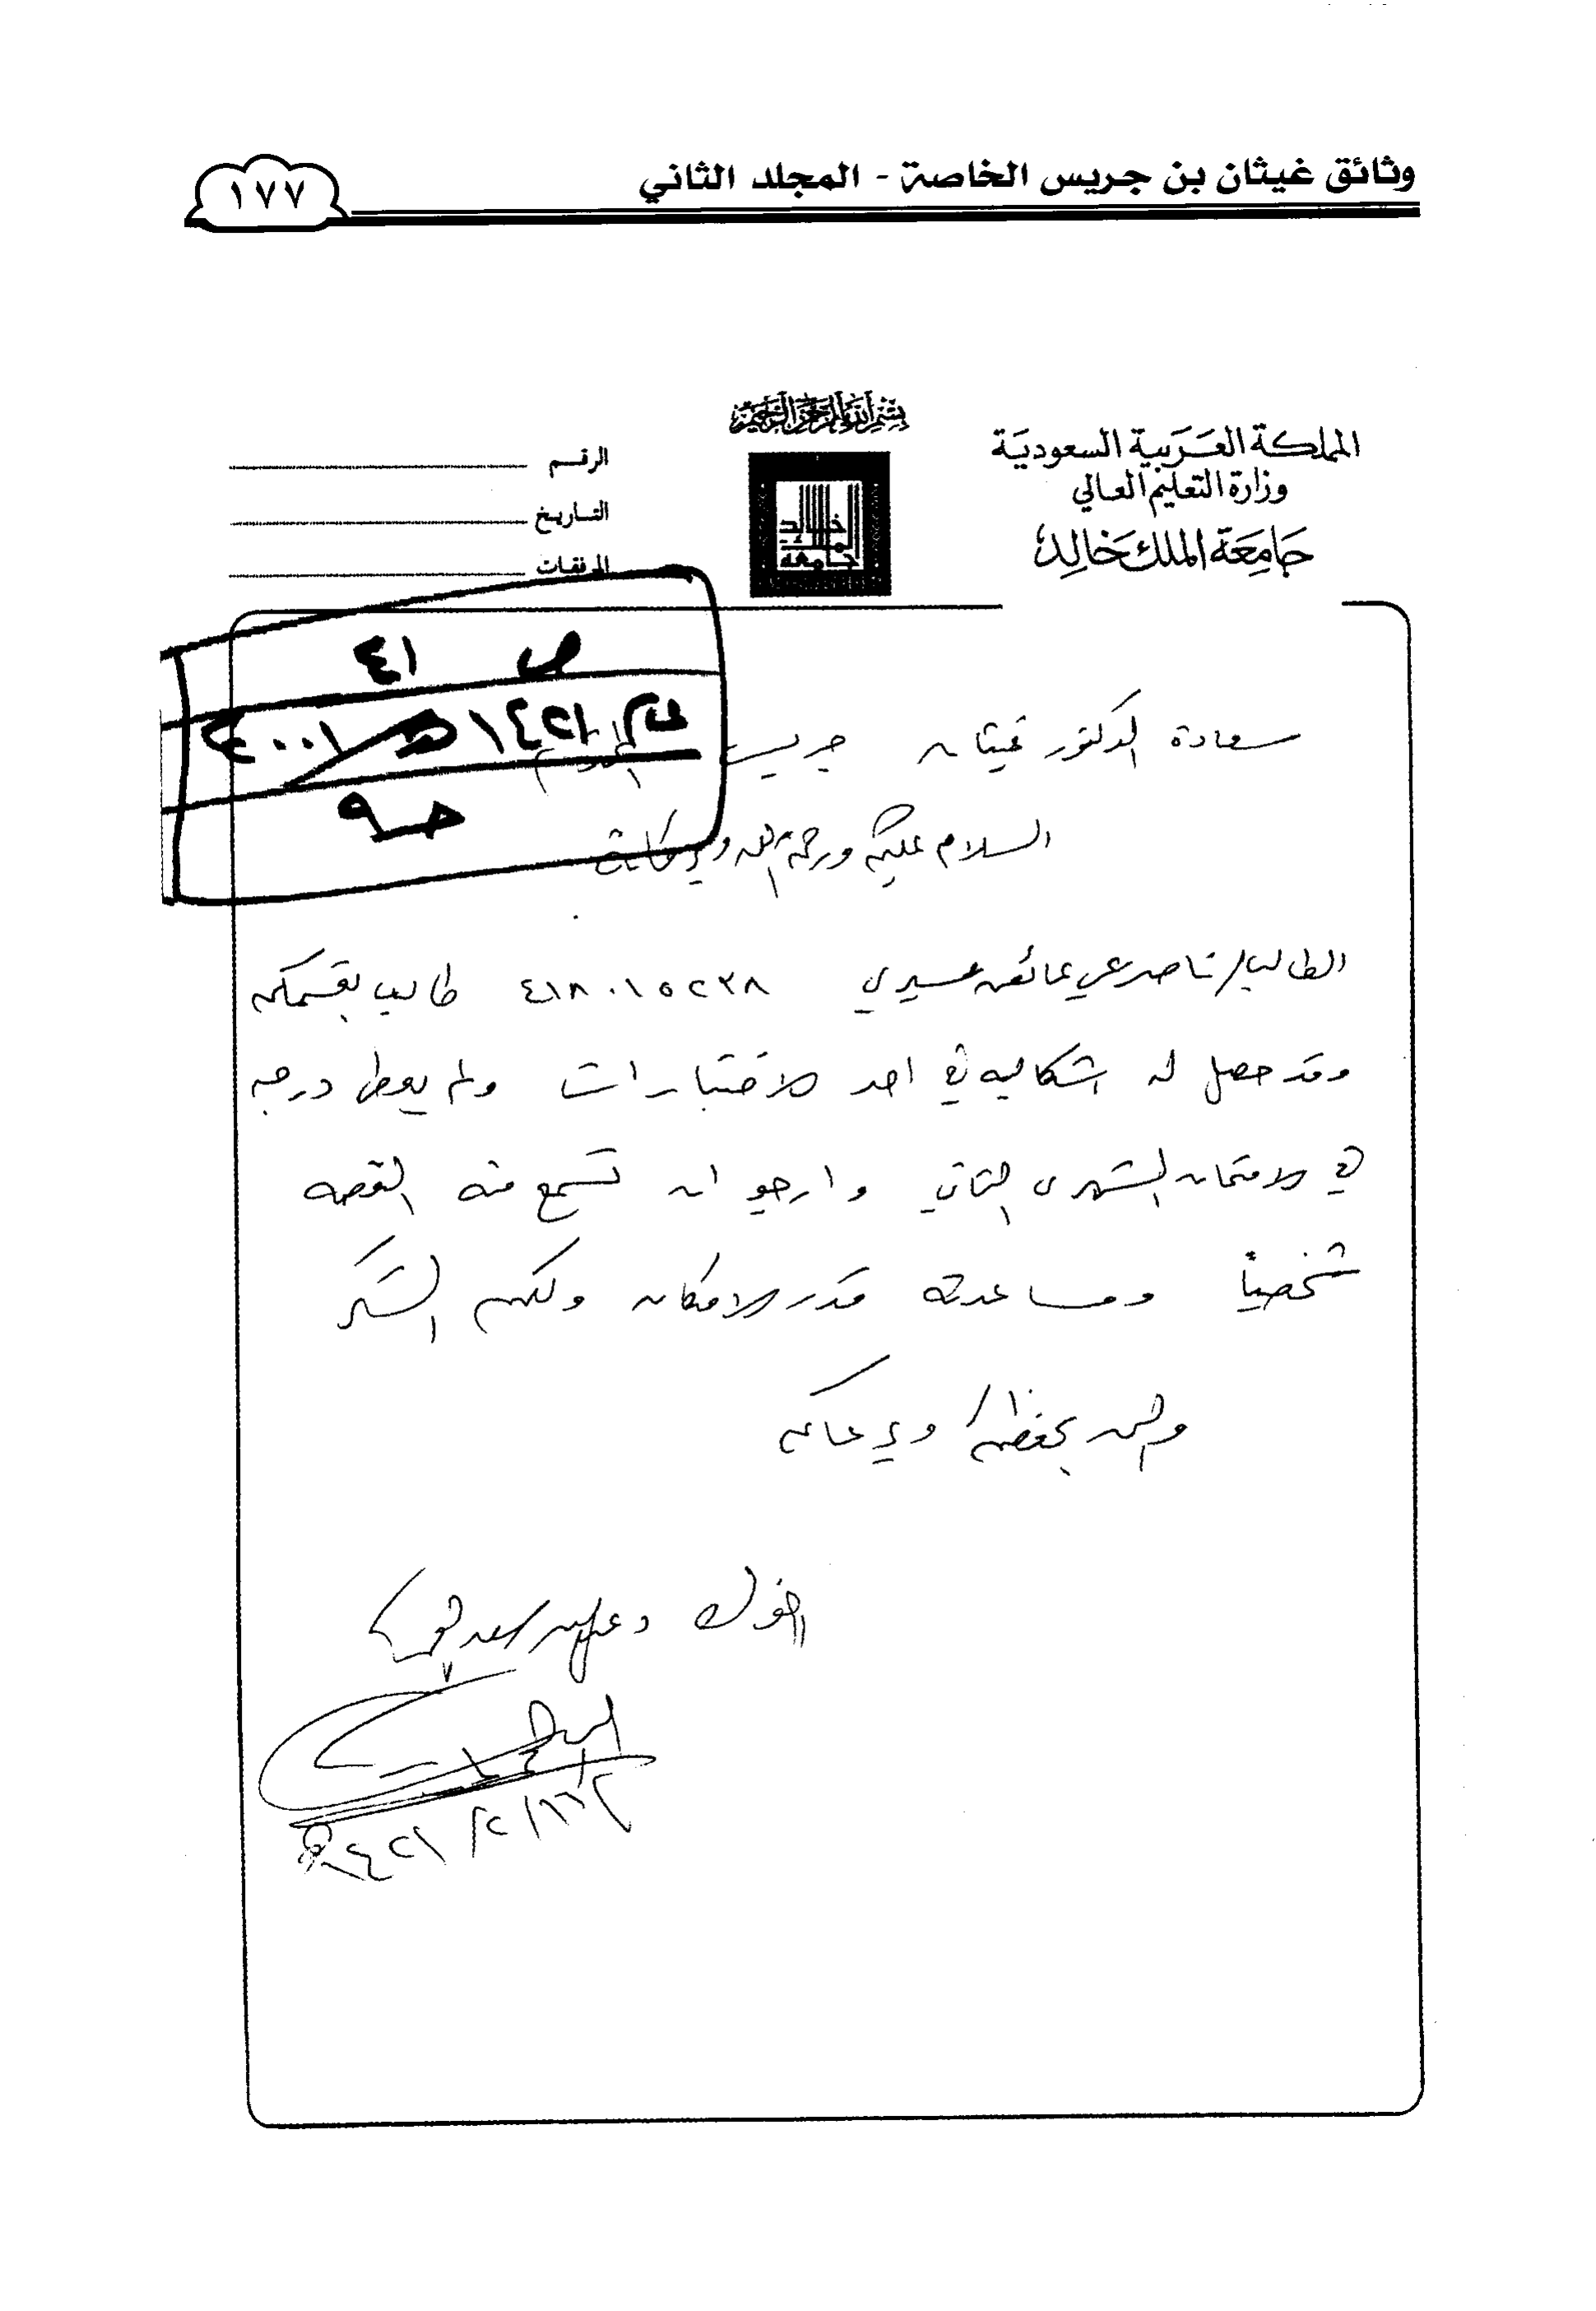 وثائق غيثان بن جريس الخاصة - المجلد الثاني
١٧٧
بسم الله الرحمن الرحيم
المملكة العربية السعودية
وزارة التعليم العالي
جامعة الملك خالد
خالد
الملك
جامعة
الرقم
التاريخ
المرفقات
ص ٤١
١٤٢١هـ / ٢٠٠١
حـ ٩
سعادة الدكتور غيثان جريس
السلام عليكم ورحمة الله وبركاته
الطالب/ ناصر علي عائض عسيري ٤١٨٠١٥٢٣٨ طالب بقسمكم
وقد حصل له اشكاليه في احد الاختبارات ولم يعط درجه
في الامتحان الشهري الثاني وارجو ان تسمع منه القصه
شخصياً ومساعدته قدر الامكان ولكم الشكر
والله يحفظكم ويرعاكم
اخوك د
١٤٢١هـ